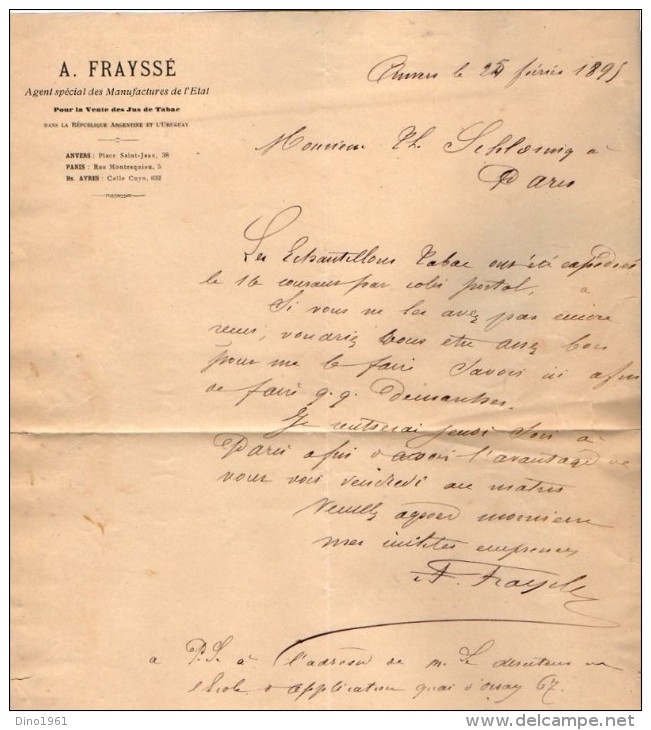 A. FRAYSSÉ
Agent spécial des Manufactures de l'Etat
Pour la Vente des Jus de Tabac
DANS LA RÉPUBLIQUE ARGENTINE ET L'URUGUAY
ANVERS : Place Saint-Jean, 38
PARIS : Rue Montesquieu, 5
Bs. AYRES : Calle Cuyo, 632
Anvers le 24 février 1895
Monsieur Th. Schlœsing à
Paris
Les Echantillons Tabac ont été expédiés
le 16 courant par colis postal, à
Si vous ne les avez pas encore
reçus, voudriez vous etre assez bon
pour me le faire savoir ici afin
de faire q.q. Démarches.
Je rentrerai jeudi soir à
Paris afin d'avoir l'avantage de
vous voir vendredi au matin
Veuillez agréer monsieur
mes civilités empressées
A. Frayssé
a P.S. à l'adresse de m. Le directeur
école d'application quai d'orsay 67.
Dino1961
www.delcampe.net